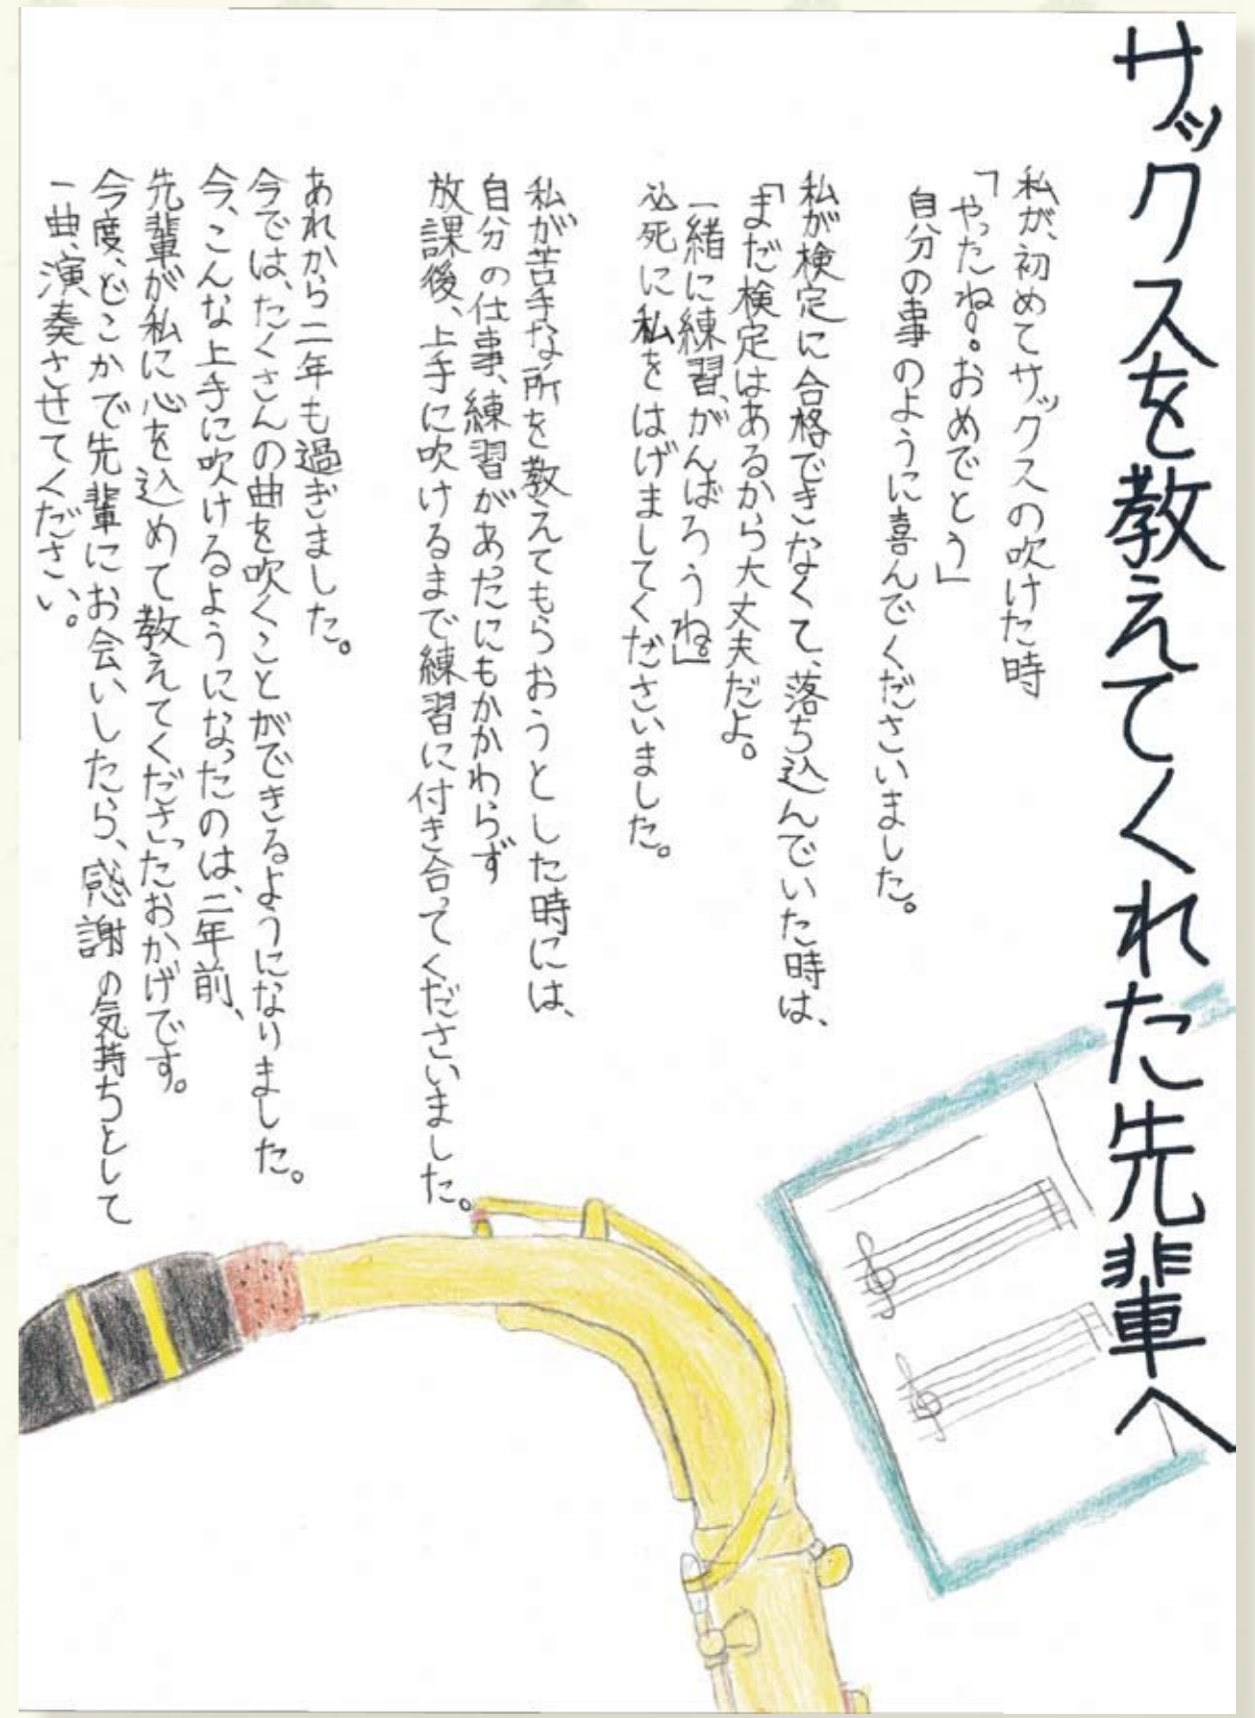 サックスを教えてくれた先輩へ
私が、初めてサックスの吹けた時
「やったね。おめでとう」
自分の事のように喜んでくださいました。
私が検定に合格できなくて、落ち込んでいた時は、
「まだ検定はあるから大丈夫だよ。
一緒に練習、がんばろうね。」
必死に私をはげましてくださいました。
私が苦手な所を教えてもらおうとした時には、
自分の仕事、練習があったにもかかわらず
放課後、上手に吹けるまで練習に付き合ってくださいました。
あれから二年も過ぎました。
今では、たくさんの曲を吹くことができるようになりました。
今、こんな上手に吹けるようになったのは、二年前、
先輩が私に心を込めて教えてくださったおかげです。
今度、どこかで先輩にお会いしたら、感謝の気持ちとして
一曲、演奏させてください。